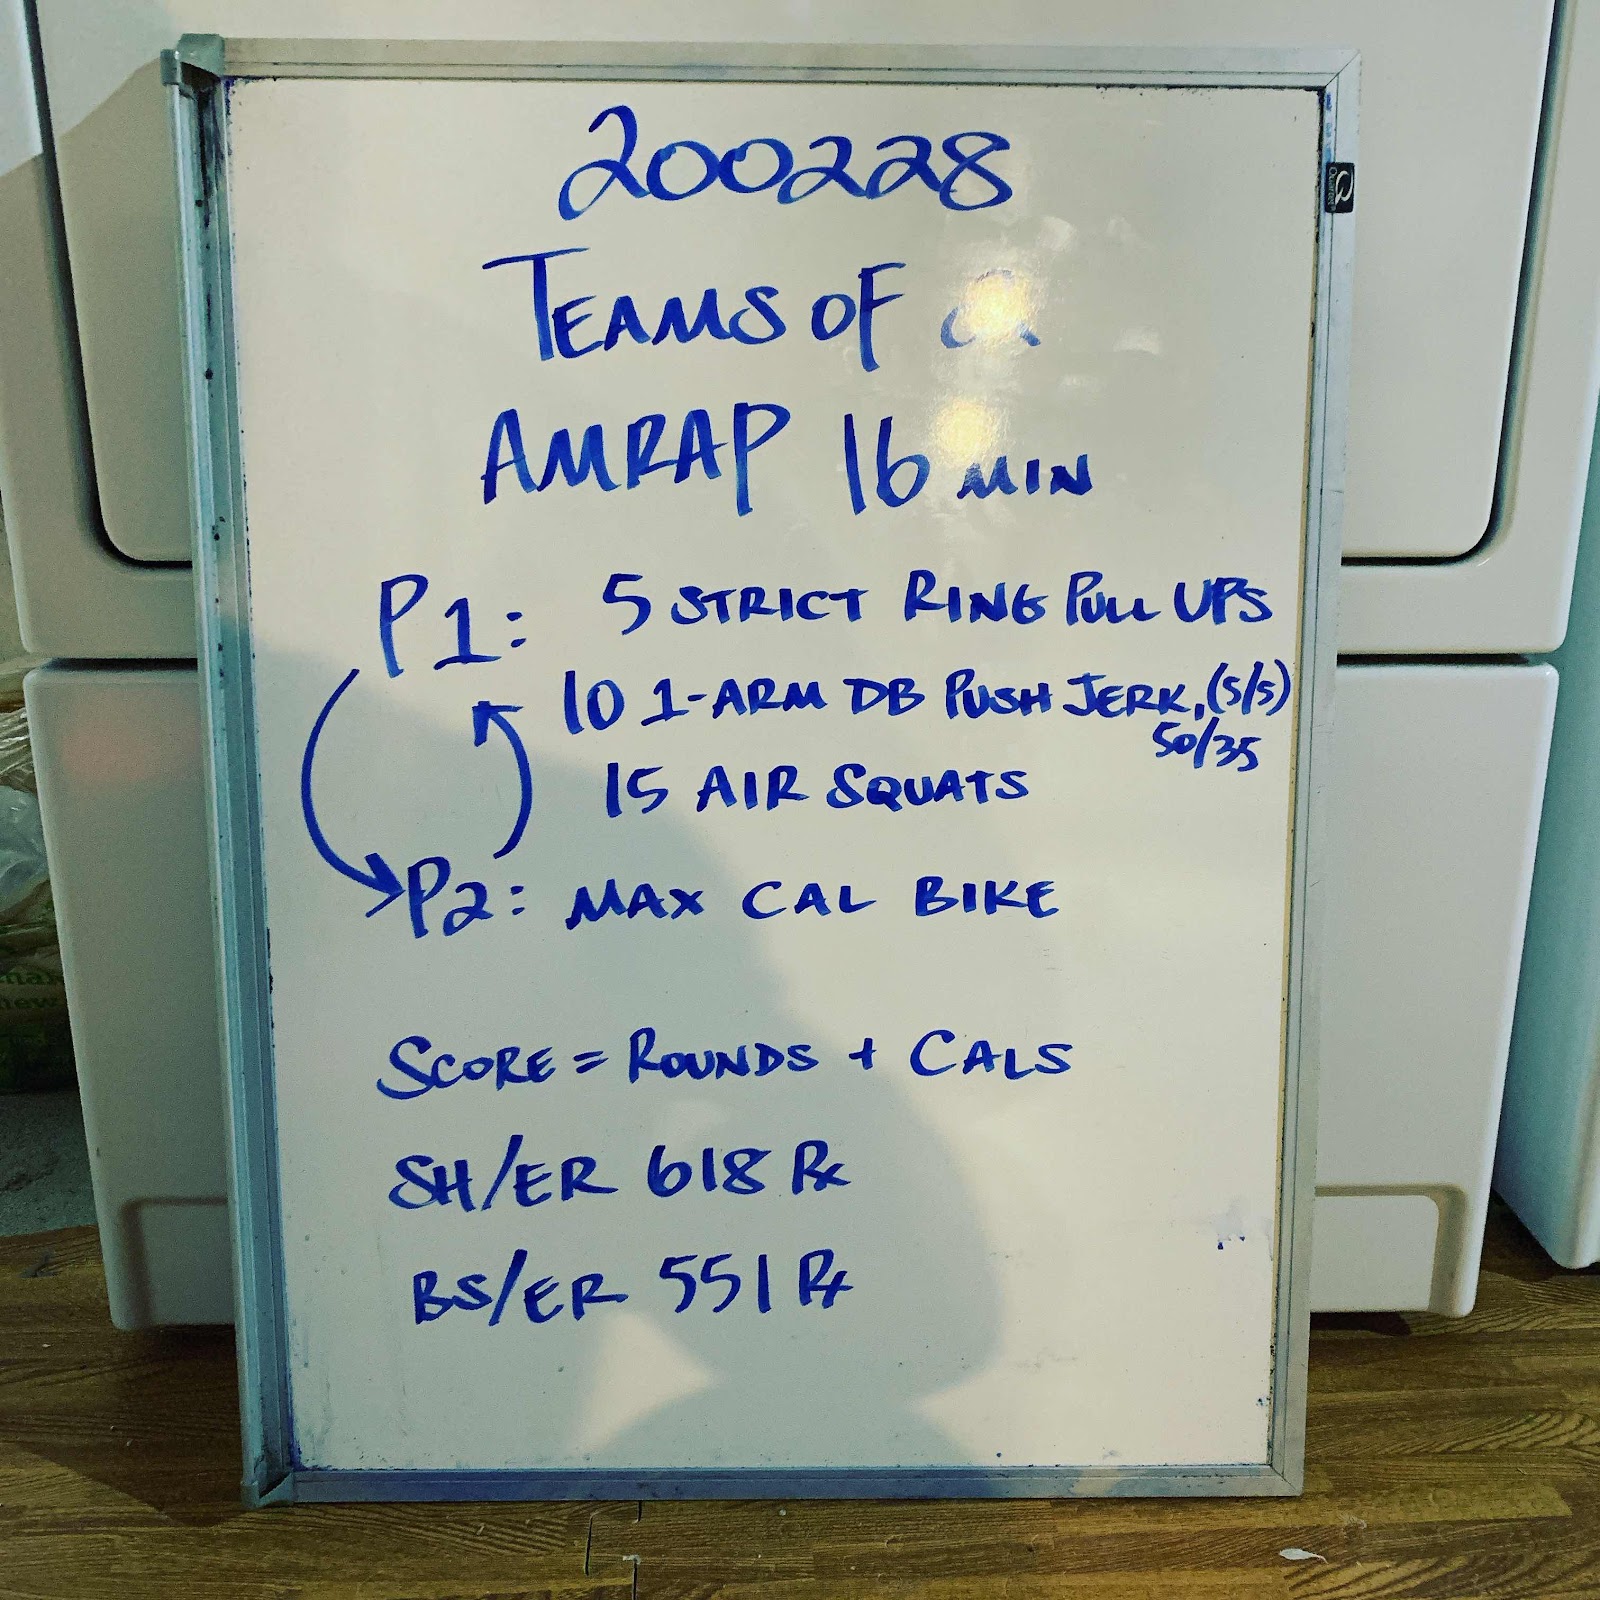 200228
TEAMS OF 2
AMRAP 16 MIN
P1: 5 STRICT RING PULL UPS
10 1-ARM DB PUSH JERK, (5/5)
50/35
15 AIR SQUATS
P2: MAX CAL BIKE
SCORE = ROUNDS + CALS
SH/ER 618 Rx
BS/ER 551 Rx
Quartet